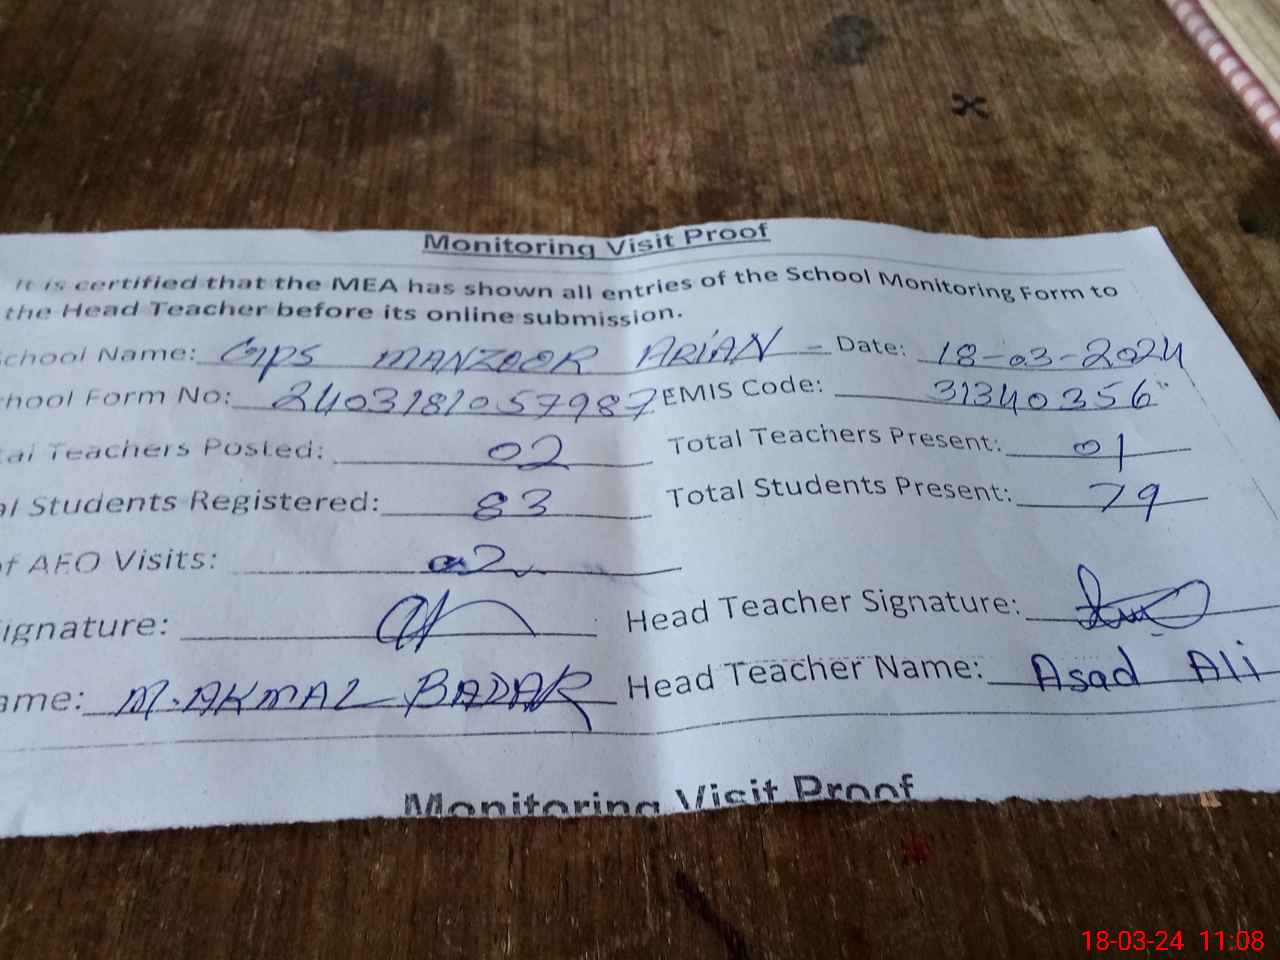 Monitoring Visit Proof
It is certified that the MEA has shown all entries of the School Monitoring Form to
the Head Teacher before its online submission.
School Name: GPS MANZOOR ARIAN - Date: 18-03-2024
hool Form No: 240318181057987 EMIS Code: 31340356
tal Teachers Posted: 02 Total Teachers Present: 01
al Students Registered: 83 Total Students Present: 79
of AEO Visits: 02
ignature: Head Teacher Signature:
ame: M.AKMAL BADAR Head Teacher Name: Asad Ali
Monitoring Visit Proof
18-03-24 11:08